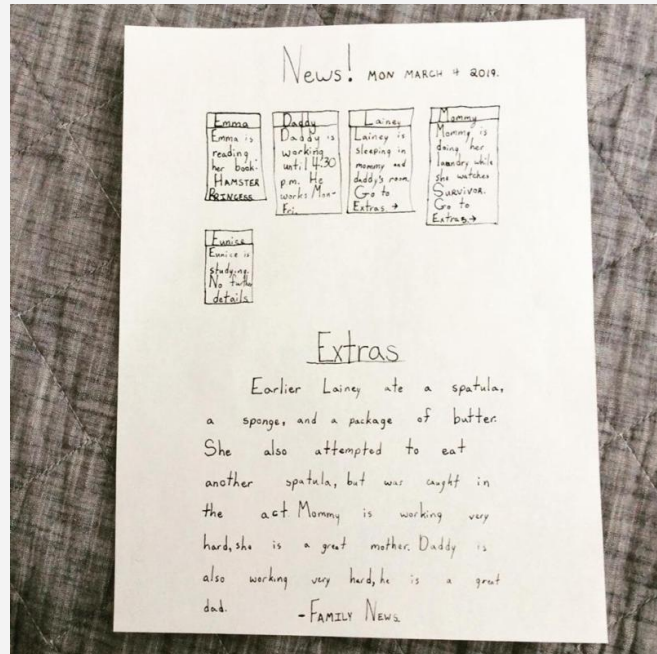 News! MON MARCH 4 2019.
Emma
Emma is
reading
her book:
HAMSTER
PRINCESS
Daddy
Daddy is
working
until 4:30
p.m. He
works Mon-
Fri.
Lainey
Lainey is
sleeping in
mommy and
daddy's room.
Go to
Extras →
Mommy
Mommy is
doing her
laundry while
she watches
SURVIVOR.
Go to
Extras →
Eunice
Eunice is
studying.
No further
details
Extras
Earlier Lainey ate a spatula,
a sponge, and a package of butter.
She also attempted to eat
another spatula, but was caught in
the act. Mommy is working very
hard, she is a great mother. Daddy is
also working very hard, he is a great
dad.
- FAMILY NEWS